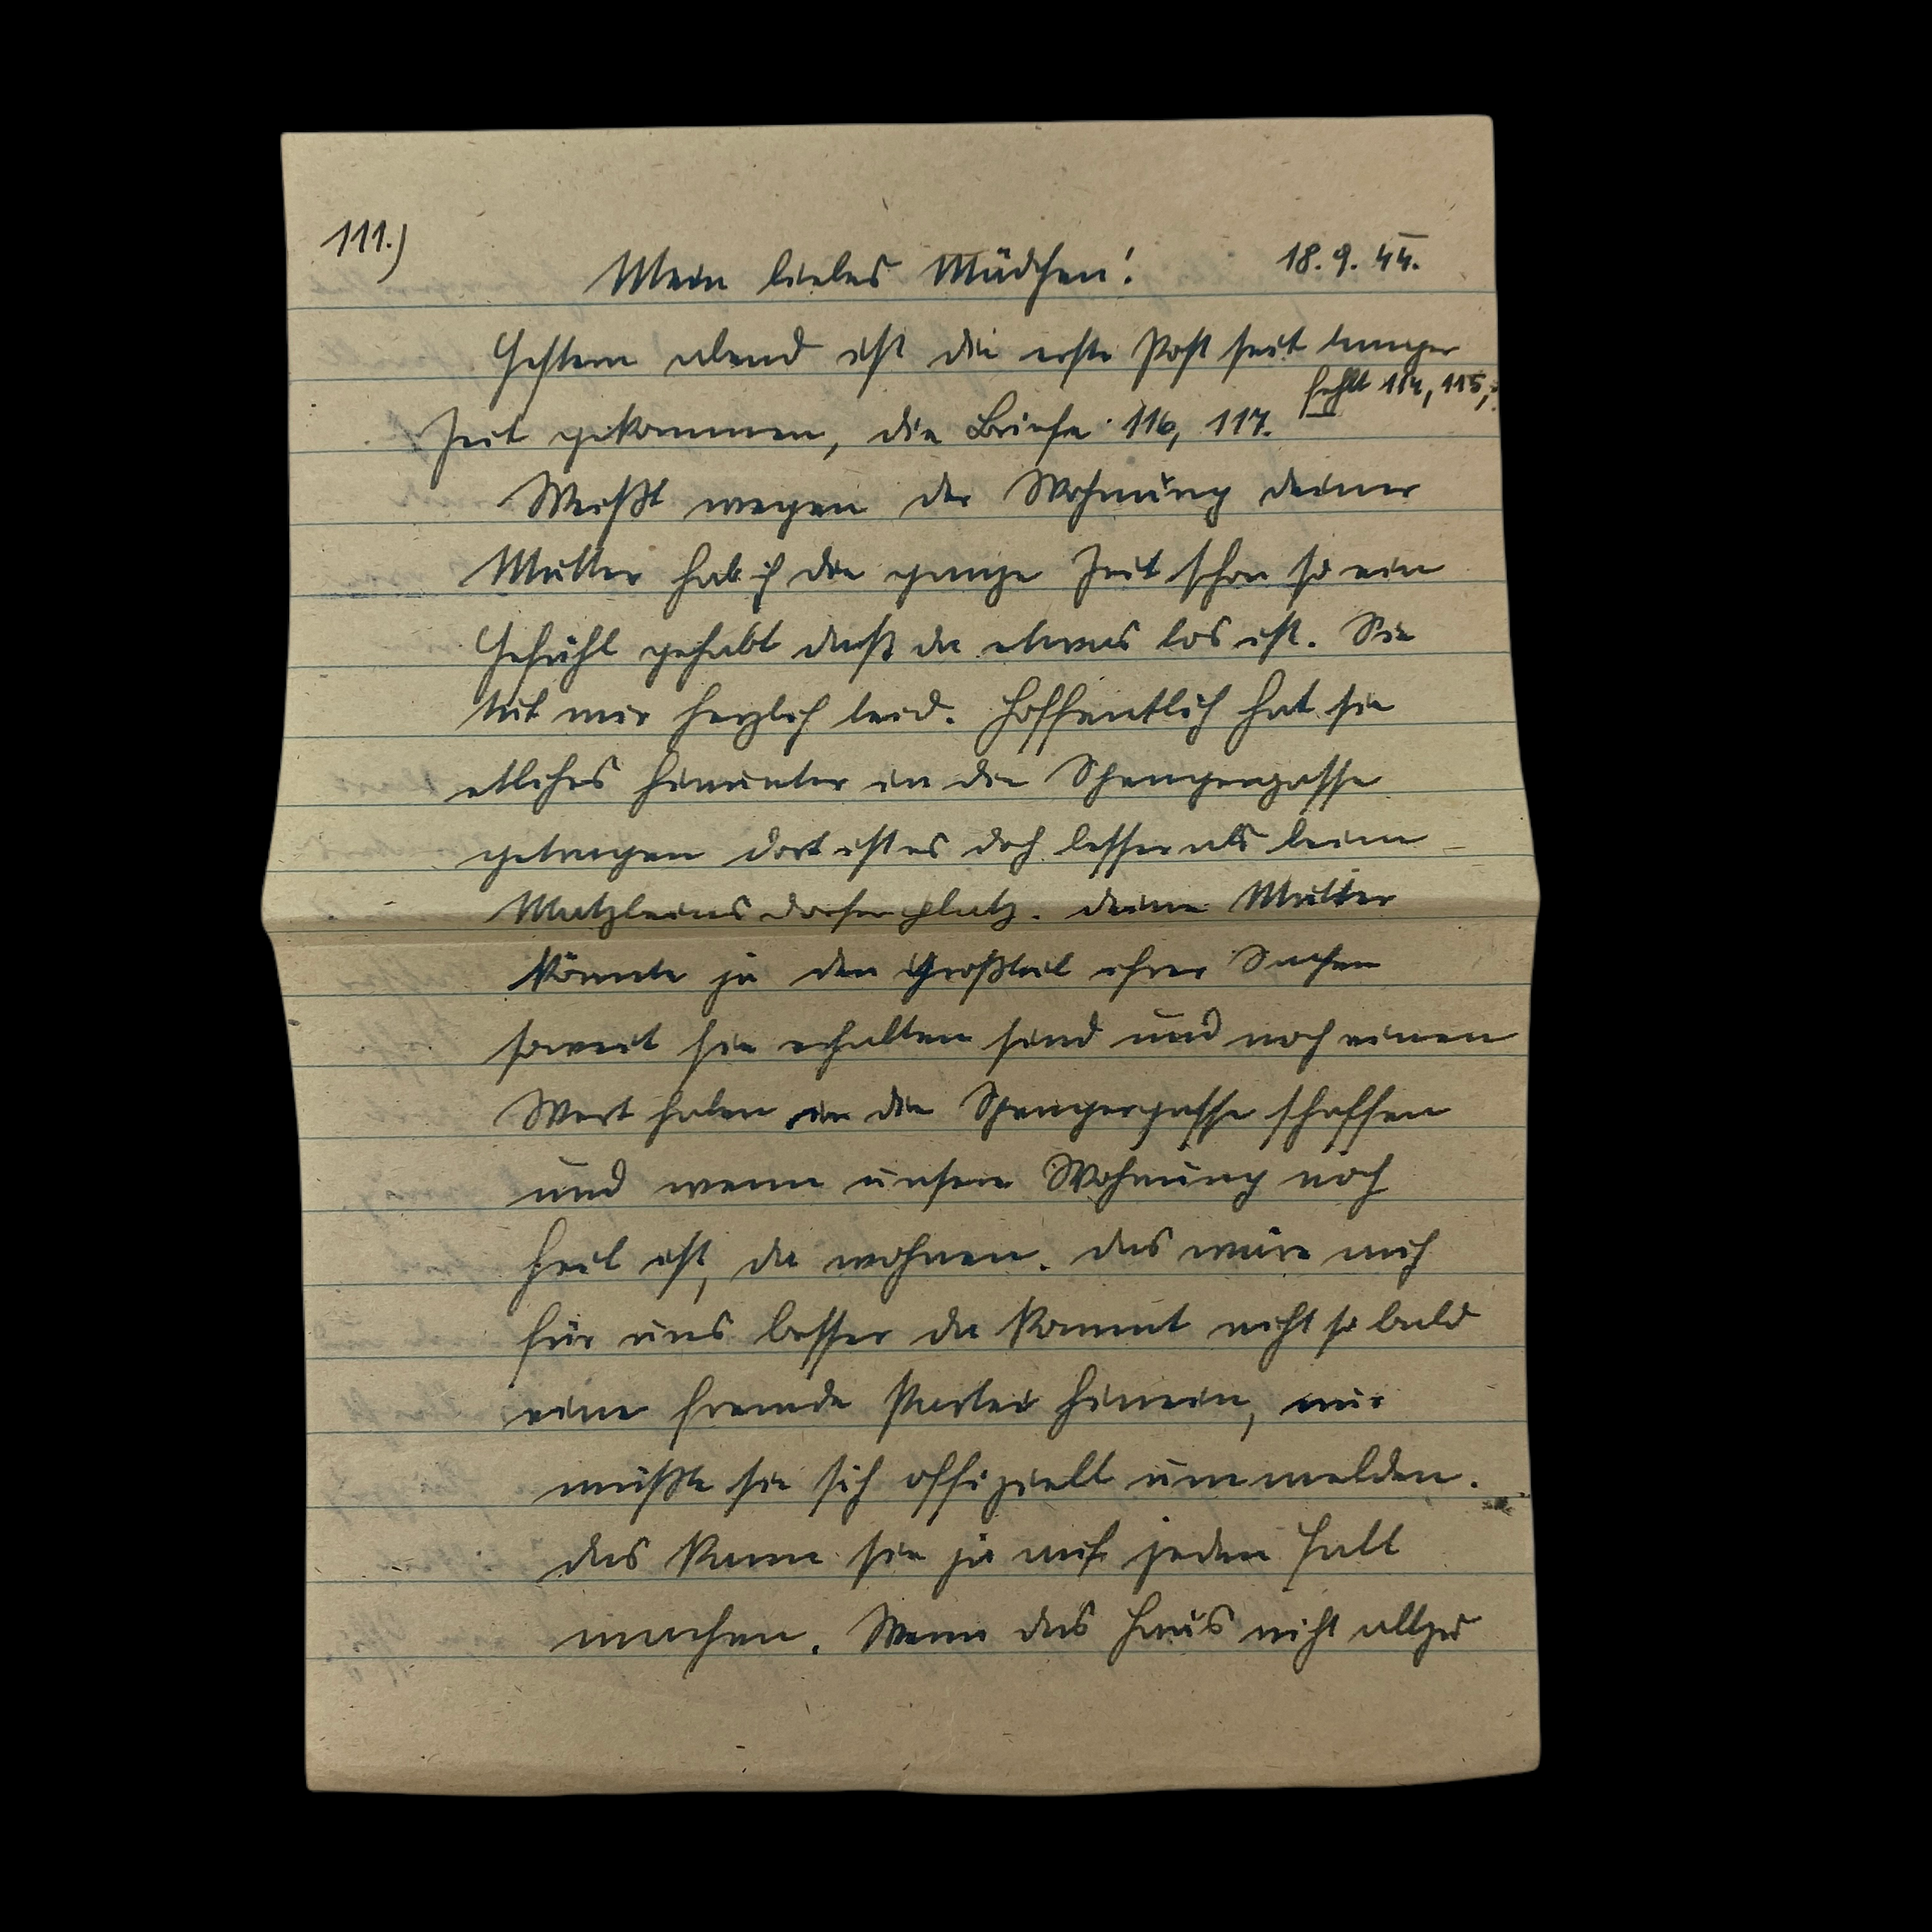 111.)
Mein liebes Mädchen! 18. 9. 44.
Gestern abend ist die erste Post seit langer
fehlt 114, 115,
Zeit gekommen, die Briefe 116, 117.
Weißt wegen der Wohnung deiner
Mutter hab ich die ganze Zeit schon so ein
Gefühl gehabt daß da etwas los ist. Sie
tut mir herzlich leid. Hoffentlich hat sie
etliches hinunter in die Spengergasse
getragen dort ist es doch besser als beim
Matzleinsdorfer platz. Deine Mutter
könnte ja den Großteil ihrer Sachen
soweit sie erhalten sind und noch einen
Wert haben in die Spengergasse schaffen
und wenn unsere Wohnung noch
heil ist, da wohnen. Das wäre auch
für uns besser da kommt nicht so bald
eine fremde Partei hinein, nur
müßte sie sich offiziell ummelden.
Das kann sie ja auf jeden Fall
machen. Wenn das Haus nicht allzu